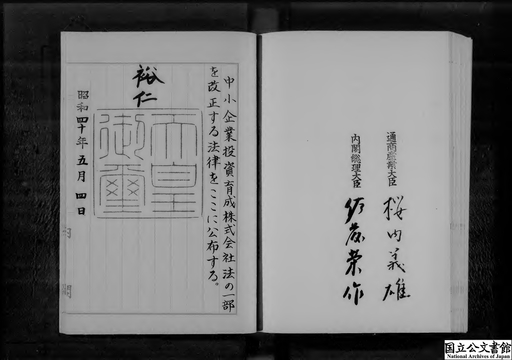 中小企業投資育成株式会社法の一部
を改正する法律をここに公布する。
裕仁
天皇
御璽
昭和四十年五月四日
通商産業大臣 桜内義雄
内閣総理大臣 佐藤栄作
国立公文書館
National Archives of Japan